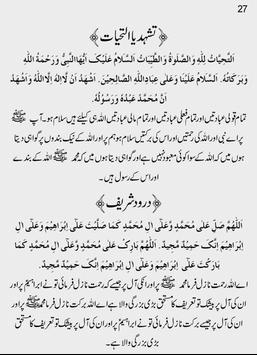 27
﴿ تشہد یا التحیات ﴾
اَلتَّحِيَّاتُ لِلّٰهِ وَالصَّلَوٰةُ وَالطَّيِّبَاتُ اَلسَّلَامُ عَلَيْكَ اَيُّهَا النَّبِيُّ وَرَحْمَةُ اللّٰهِ
وَبَرَكَاتُهُ. اَلسَّلَامُ عَلَيْنَا وَعَلٰى عِبَادِ اللّٰهِ الصَّالِحِيْنَ. اَشْهَدُ اَنْ لَّا اِلٰهَ اِلَّا اللّٰهُ وَاَشْهَدُ
اَنَّ مُحَمَّدً عَبْدُهُ وَرَسُوْلُهُ.
تمام قولی عبادتیں اور تمام فعلی عبادتیں اور تمام مالی عبادتیں اللہ ہی کیلئے ہیں سلام ہو۔ آپ ﷺ
پر اے نبی اور اللہ کی رحمتیں اور اس کی برکتیں سلام ہو ہم پر اور اللہ کے نیک بندوں پر گواہی دیتا
ہوں میں کہ اللہ کے سوا کوئی معبود نہیں ہے اور گواہی دیتا ہوں میں کہ محمد ﷺ اللہ کے بندے
اور اس کے رسول ہیں۔
﴿ درود شریف ﴾
اَللّٰهُمَّ صَلِّ عَلٰى مُحَمَّدٍ وَّعَلٰى اٰلِ مُحَمَّدٍ كَمَا صَلَّيْتَ عَلٰى اِبْرَاهِيْمَ وَعَلٰى اٰلِ
اِبْرَاهِيْمَ اِنَّكَ حَمِيْدٌ مَّجِيْدٌ. اَللّٰهُمَّ بَارِكْ عَلٰى مُحَمَّدٍ وَّعَلٰى اٰلِ مُحَمَّدٍ كَمَا
بَارَكْتَ عَلٰى اِبْرَاهِيْمَ وَعَلٰى اٰلِ اِبْرَاهِيْمَ اِنَّكَ حَمِيْدٌ مَّجِيْدٌ.
اے اللہ رحمت نازل فرما محمد ﷺ پر اور انکی آل پر جیسے کہ رحمت نازل فرمائی تو نے ابراہیم پر اور
ان کی آل پر بیشک تو تعریف کا مستحق بڑی بزرگی والا ہے اے اللہ برکت نازل فرما محمد ﷺ پر اور
ان کی آل پر جیسے برکت نازل فرمائی تو نے ابراہیم پر اور ان کی آل پر بیشک تو تعریف کا مستحق
بڑی بزرگی والا ہے۔